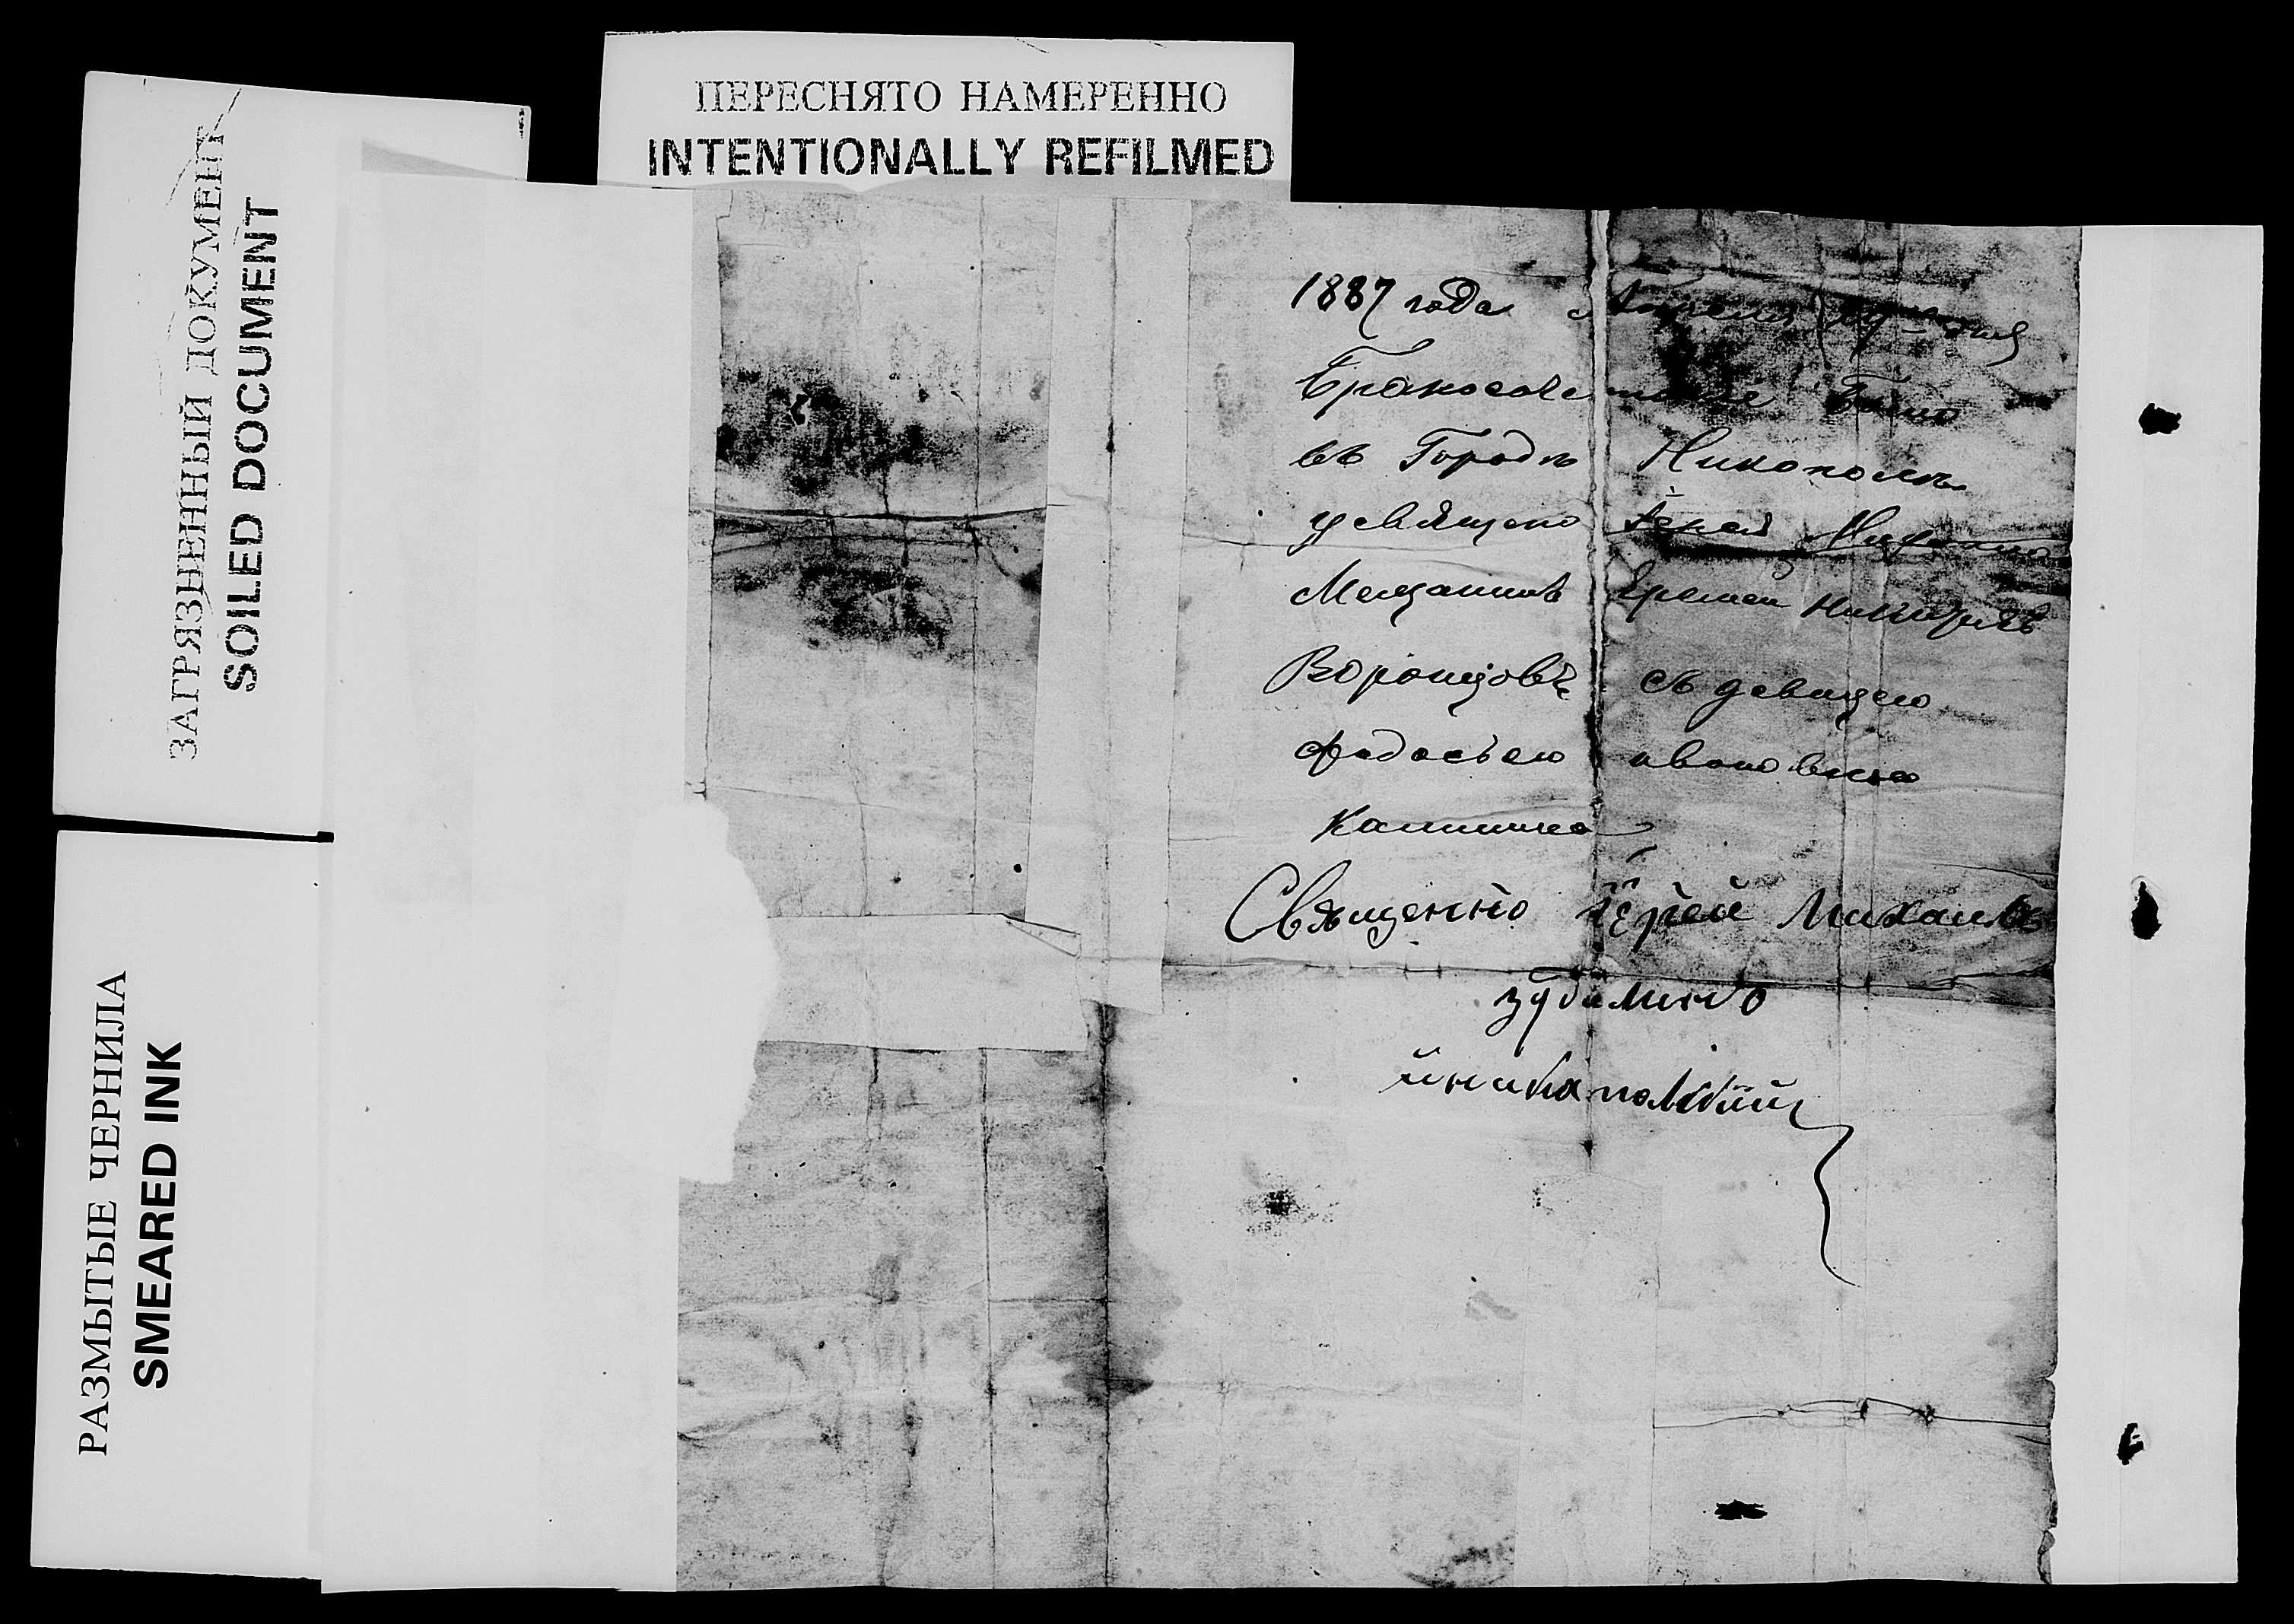 ПЕРЕСНЯТО НАМЕРЕННО
INTENTIONALLY REFILMED
ЗАГРЯЗНЕННЫЙ ДОКУМЕНТ
SOILED DOCUMENT
РАЗМЫТЫЕ ЧЕРНИЛА
SMEARED INK
1887 года Апреля дня
Бракосочетание Было
въ Городѣ Никополѣ
у священо Іерея
Мещанинъ Еремей
Воронцовъ съ девицею
Федосьею ивановною
Священно Іерей Михаилъ